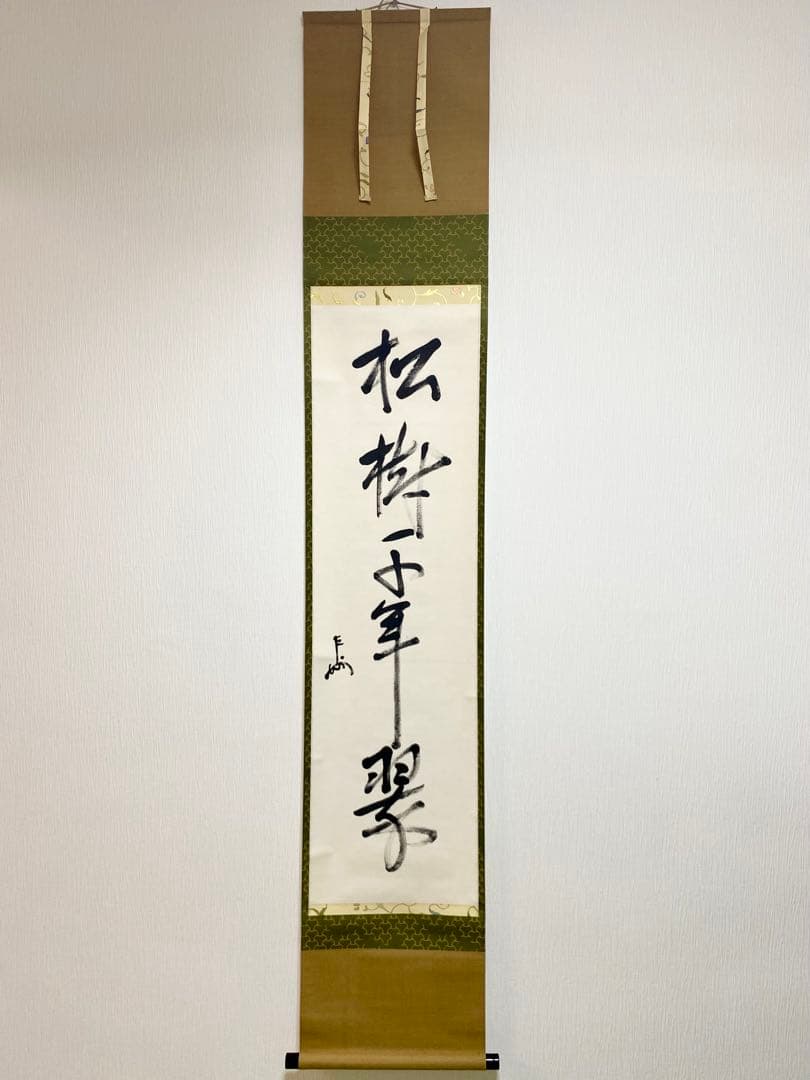 松樹千年翠